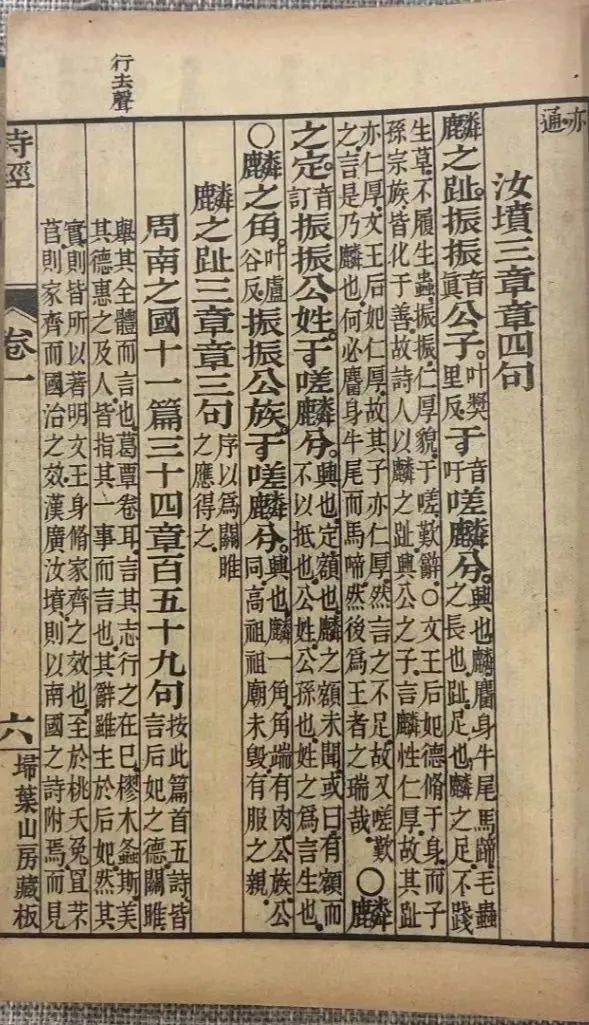 亦通
汝墳三章章四句
麟之趾。振振音真公子。叶奬里反于音吁嗟麟兮。興也麟麕身牛尾馬蹄毛蟲之長也趾足也麟之足不踐
生草不履生蟲振振仁厚貌于嗟歎辭〇文王后妃德脩于身而子孫宗族皆化于善故詩人以麟之趾興公之子言麟性仁厚故其趾
亦仁厚文王后妃仁厚故其子亦仁厚然言之不足故又嗟歎之言是乃麟也何必麕身牛尾而馬啼然後爲王者之瑞哉〇麟
之定。音訂振振公姓。于嗟麟兮。興也定額也麟之額未聞或曰有額而不以抵也公姓公孫也姓之爲言生也
〇麟之角。叶盧谷反振振公族。于嗟麟兮。興也麟一角角端有肉公族公同高祖祖廟未毀有服之親
麟之趾三章章三句序以爲關雎之應得之
周南之國十一篇三十四章百五十九句按此篇首五詩皆言后妃之德關雎
行去聲
舉其全體而言也葛覃卷耳言其志行之在已樛木螽斯美其德惠之及人皆指其一事而言也其辭雖主於后妃然其
實則皆所以著明文王身脩家齊之效也至於桃夭兔罝芣苢則家齊而國治之效漢廣汝墳則以南國之詩附焉而見
詩經 卷一 六 埽葉山房藏板